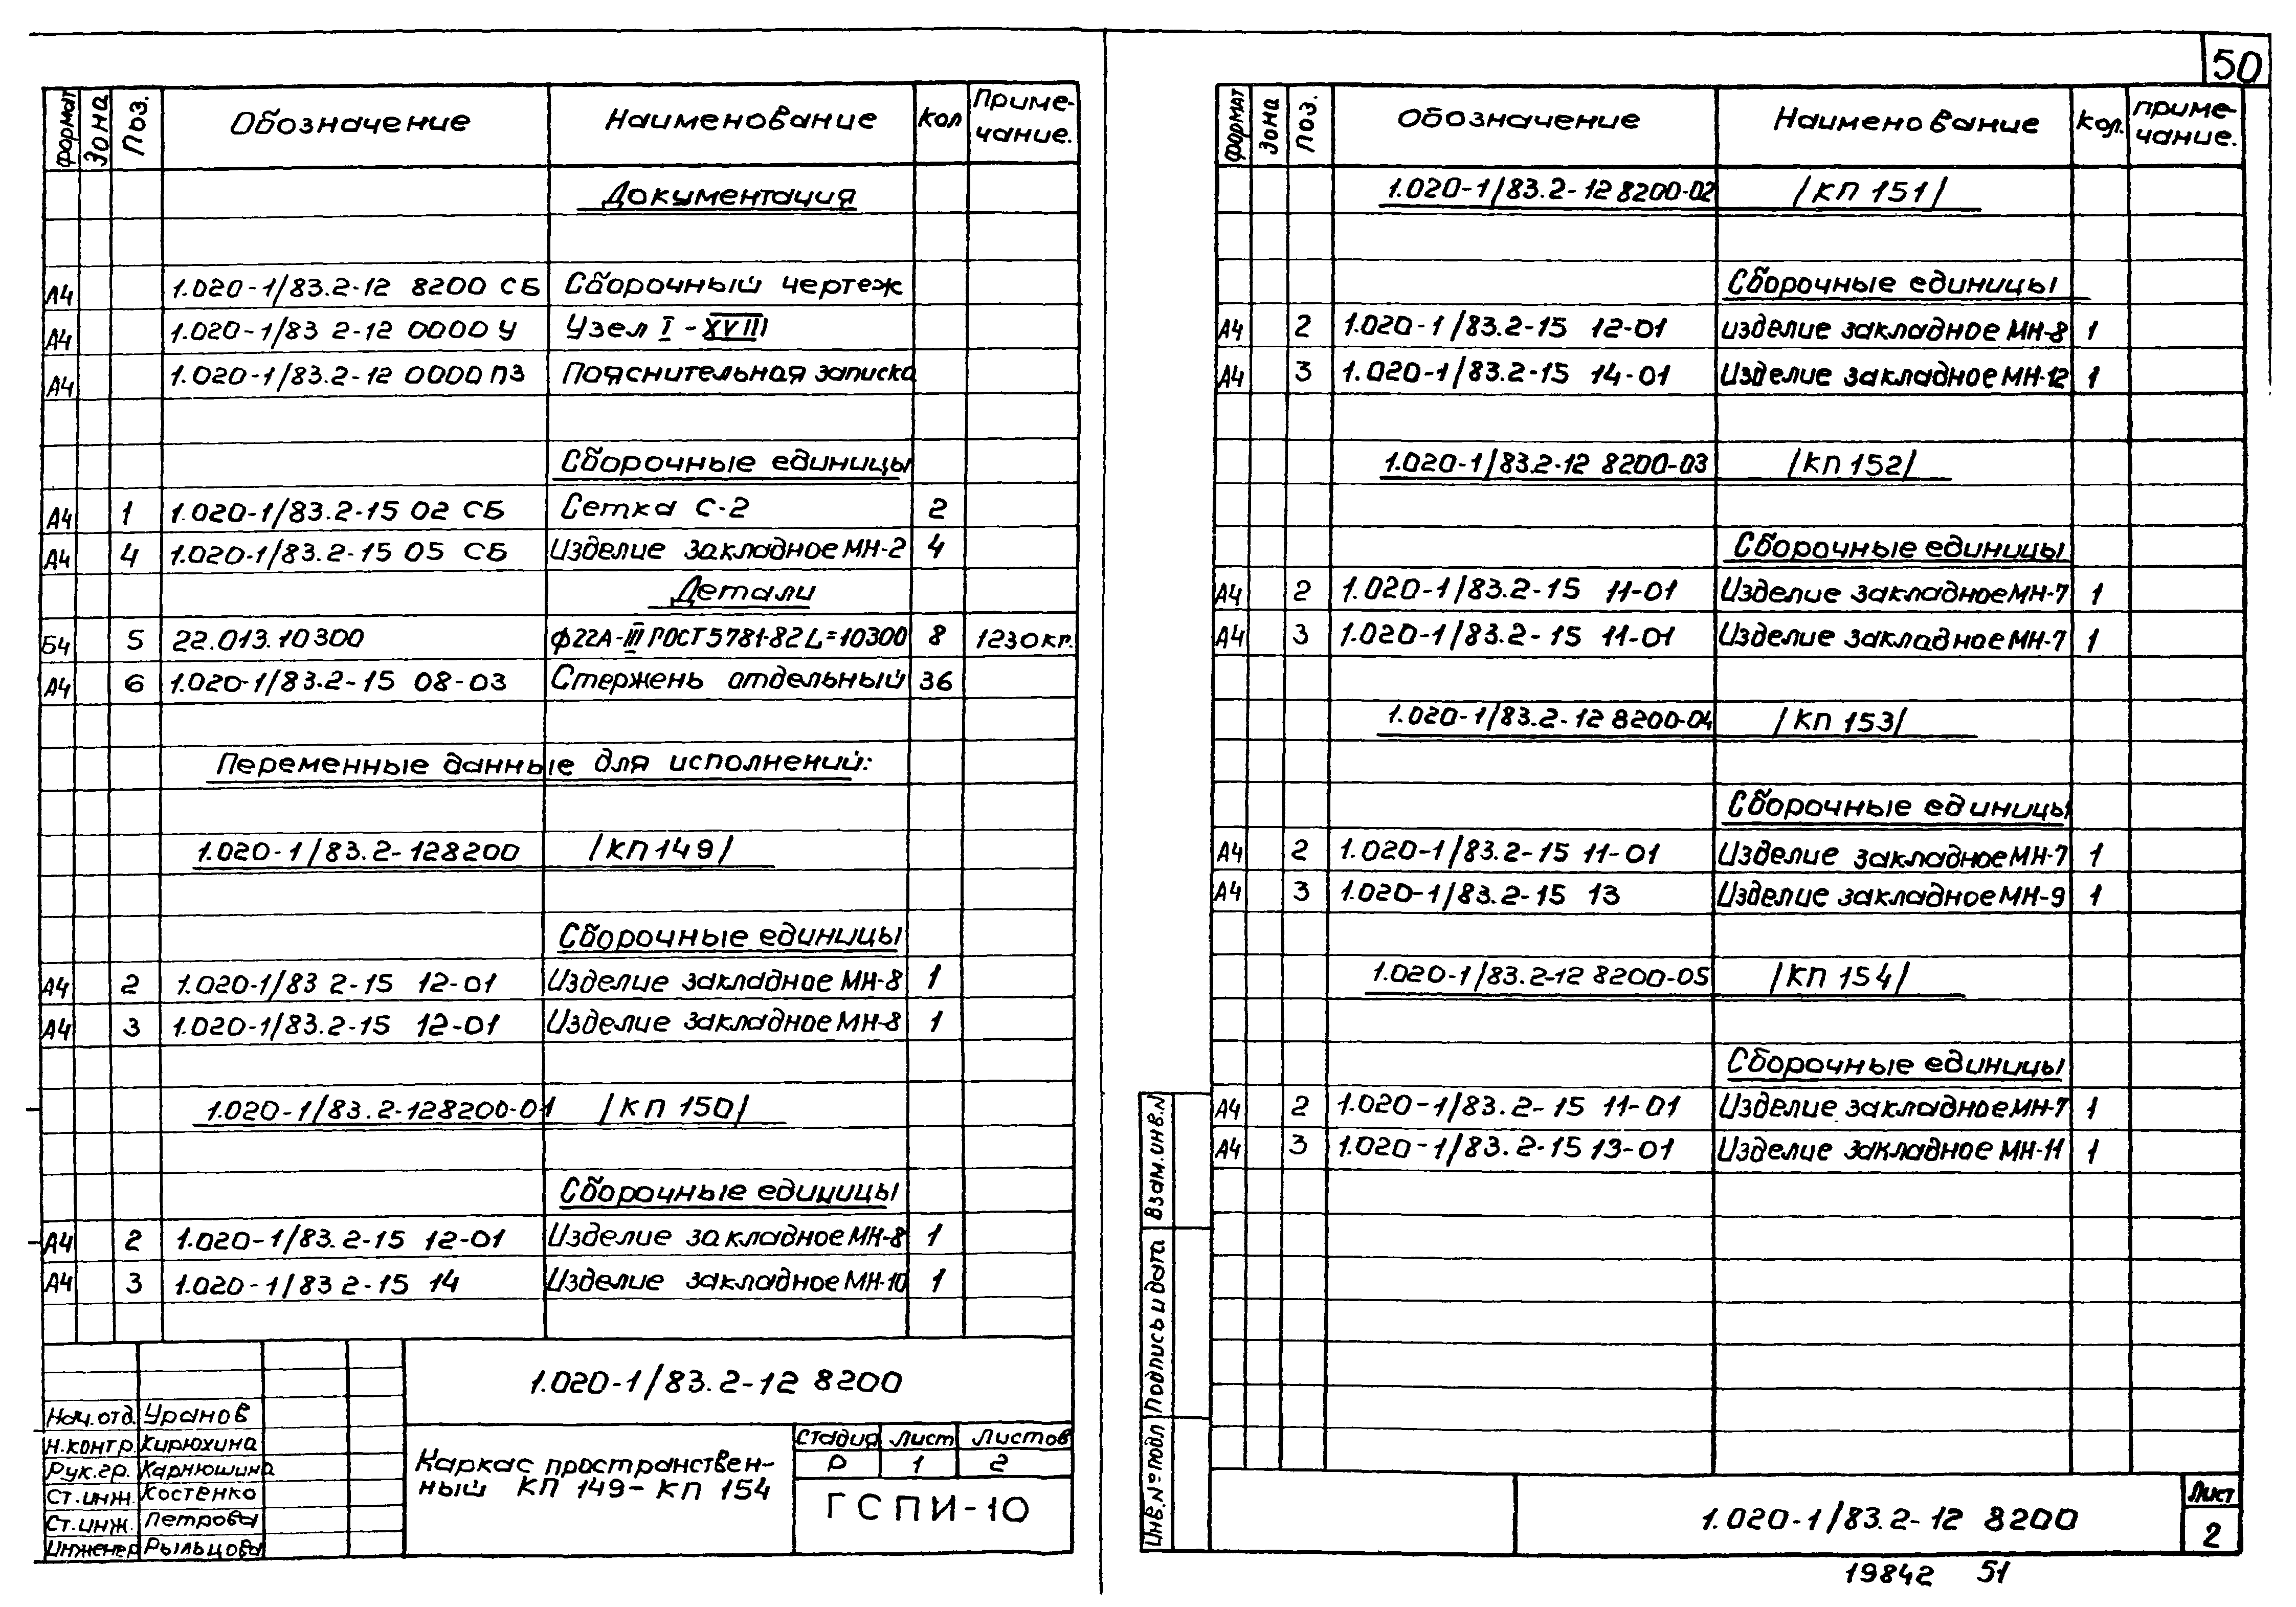 50
Формат Зона Поз. Обозначение Наименование Кол Приме-
чание.
Документация
А4 1.020-1/83.2-12 8200 СБ Сборочный чертеж
А4 1.020-1/83 2-12 0000 У Узел I - XVIII
А4 1.020-1/83.2-12 0000 ПЗ Пояснительная записка
Сборочные единицы
А4 1 1.020-1/83.2-15 02 СБ Сетка С-2 2
А4 4 1.020-1/83.2-15 05 СБ Изделие закладное МН-2 4
Детали
Б4 5 22.013.10300 ф22А-III ГОСТ 5781-82 L=10300 8 1230кг.
А4 6 1.020-1/83.2-15 08-03 Стержень отдельный 36
Переменные данные для исполнений:
1.020-1/83.2-128200 /КП 149/
Сборочные единицы
А4 2 1.020-1/83 2-15 12-01 Изделие закладное МН-8 1
А4 3 1.020-1/83.2-15 12-01 Изделие закладное МН-8 1
1.020-1/83.2-128200-01 /КП 150/
Сборочные единицы
А4 2 1.020-1/83.2-15 12-01 Изделие закладное МН-8 1
А4 3 1.020-1/83 2-15 14 Изделие закладное МН-10 1
1.020-1/83.2-12 8200
Нач.отд. Уранов
Н.контр. Кирюхина
Рук.гр. Карнюшина
Ст.инж. Костенко
Ст.инж. Петрова
Инженер Рыльцова
Каркас пространствен-
ный КП 149- КП 154
Стадия Лист Листов
Р 1 2
ГСПИ-10
Формат Зона Поз. Обозначение Наименование Кол. Приме-
чание.
1.020-1/83.2-12 8200-02 /КП 151/
Сборочные единицы
А4 2 1.020-1/83.2-15 12-01 изделие закладное МН-8 1
А4 3 1.020-1/83.2-15 14-01 Изделие закладное МН-12 1
1.020-1/83.2-12 8200-03 /КП 152/
Сборочные единицы
А4 2 1.020-1/83.2-15 11-01 Изделие закладное МН-7 1
А4 3 1.020-1/83.2-15 11-01 Изделие закладное МН-7 1
1.020-1/83.2-12 8200-04 /КП 153/
Сборочные единицы
А4 2 1.020-1/83.2-15 11-01 Изделие закладное МН-7 1
А4 3 1.020-1/83.2-15 13 Изделие закладное МН-9 1
1.020-1/83.2-12 8200-05 /КП 154/
Сборочные единицы
А4 2 1.020-1/83.2-15 11-01 Изделие закладное МН-7 1
А4 3 1.020-1/83.2-15 13-01 Изделие закладное МН-11 1
Взам.инв.№
Подпись и дата
Инв.№ подл
1.020-1/83.2-12 8200
Лист
2
19842 51